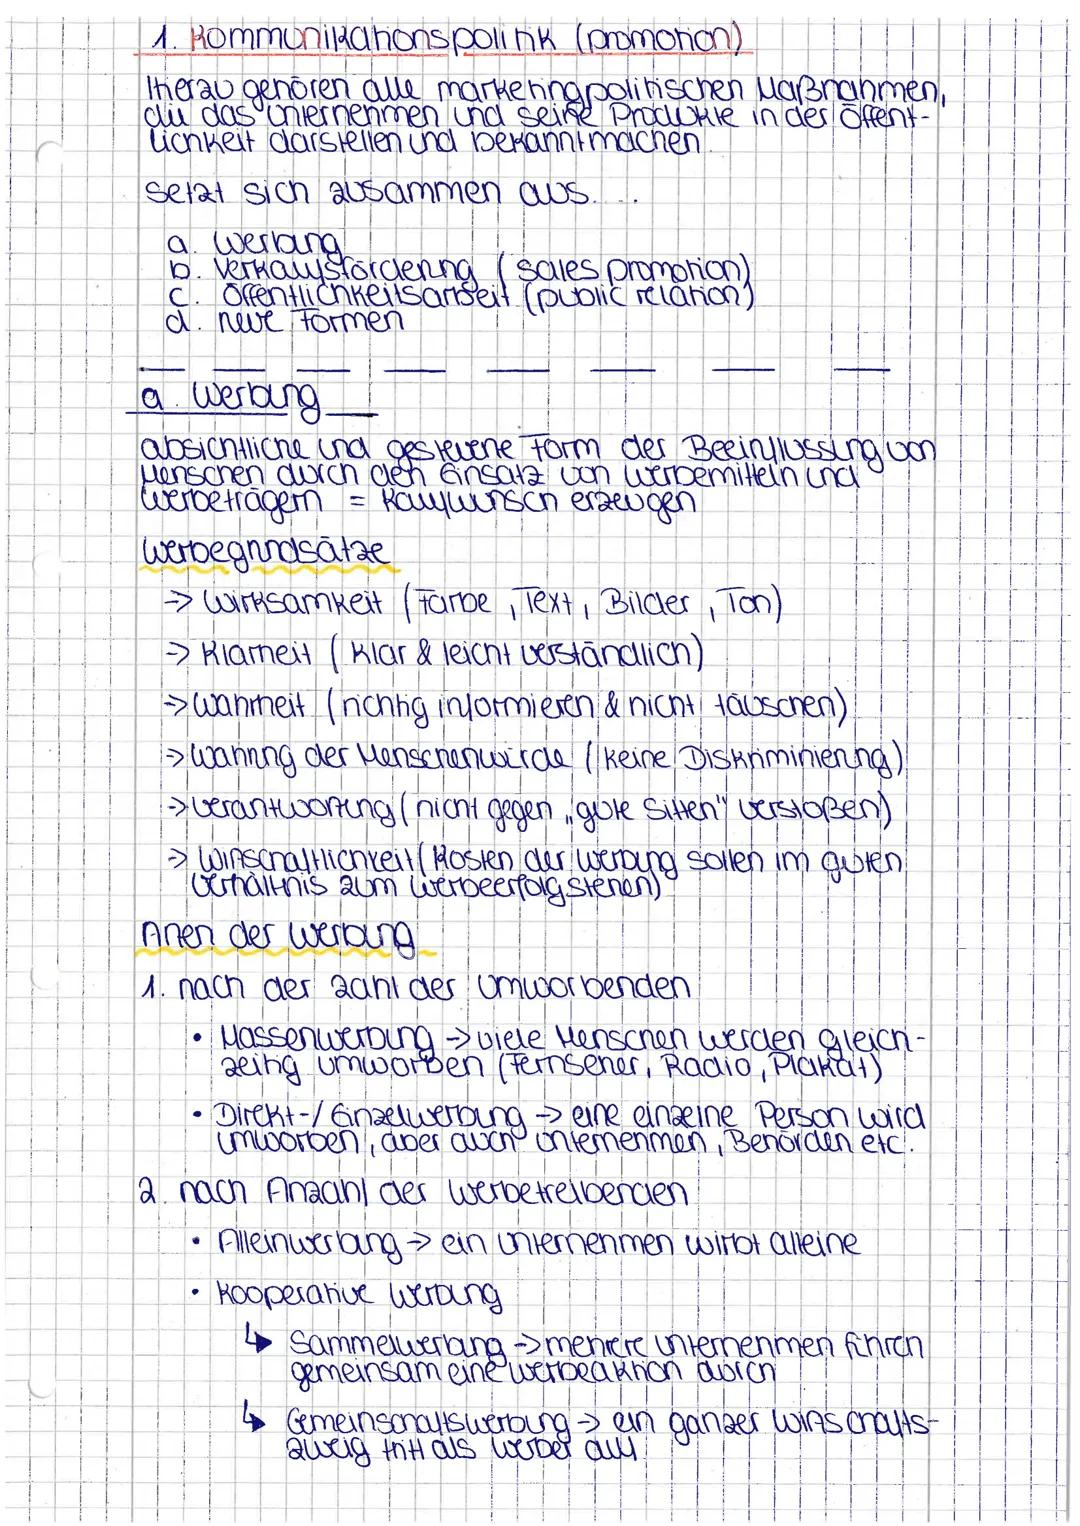 1. Kommunikationspolitik (promotion)
Hierzu gehören alle marketingpolitischen Maßnahmen,
die das Unternehmen und seine Produkte in der Öffent-
lichkeit darstellen und bekanntmachen.
setzt sich zusammen aus....
a. Werbung
b. Verkaufsförderung (sales promotion)
c. Öffentlichkeitsarbeit (public relation)
d. neue Formen
a. Werbung
absichtliche und gesteuerte Form der Beeinflussung von
Menschen durch den Einsatz von Werbemitteln und
Werbeträgern = Kaufwunsch erzeugen
Werbegrundsätze
-> Wirksamkeit (Farbe, Text, Bilder, Ton)
-> Klarheit (klar & leicht verständlich)
-> Wahrheit (richtig informieren & nicht täuschen)
-> Wahrung der Menschenwürde (keine Diskriminierung)
-> Verantwortung (nicht gegen „gute Sitten" verstoßen)
-> Wirtschaftlichkeit (Kosten der Werbung sollen im guten
Verhältnis zum Werbeerfolg stehen)
Arten der Werbung
1. nach der Zahl der Umworbenden
• Massenwerbung -> viele Menschen werden gleich-
zeitig umworben (Fernseher, Radio, Plakat)
• Direkt-/Einzelwerbung -> eine einzelne Person wird
umworben, aber auch Unternehmen, Behörden etc.
2. nach Anzahl der Werbetreibenden
• Alleinwerbung -> ein Unternehmen wirbt alleine
• Kooperative Werbung
↳ Sammelwerbung -> mehrere Unternehmen führen
gemeinsam eine Werbeaktion durch
↳ Gemeinschaftswerbung -> ein ganzer Wirtschafts-
zweig tritt als Werber auf